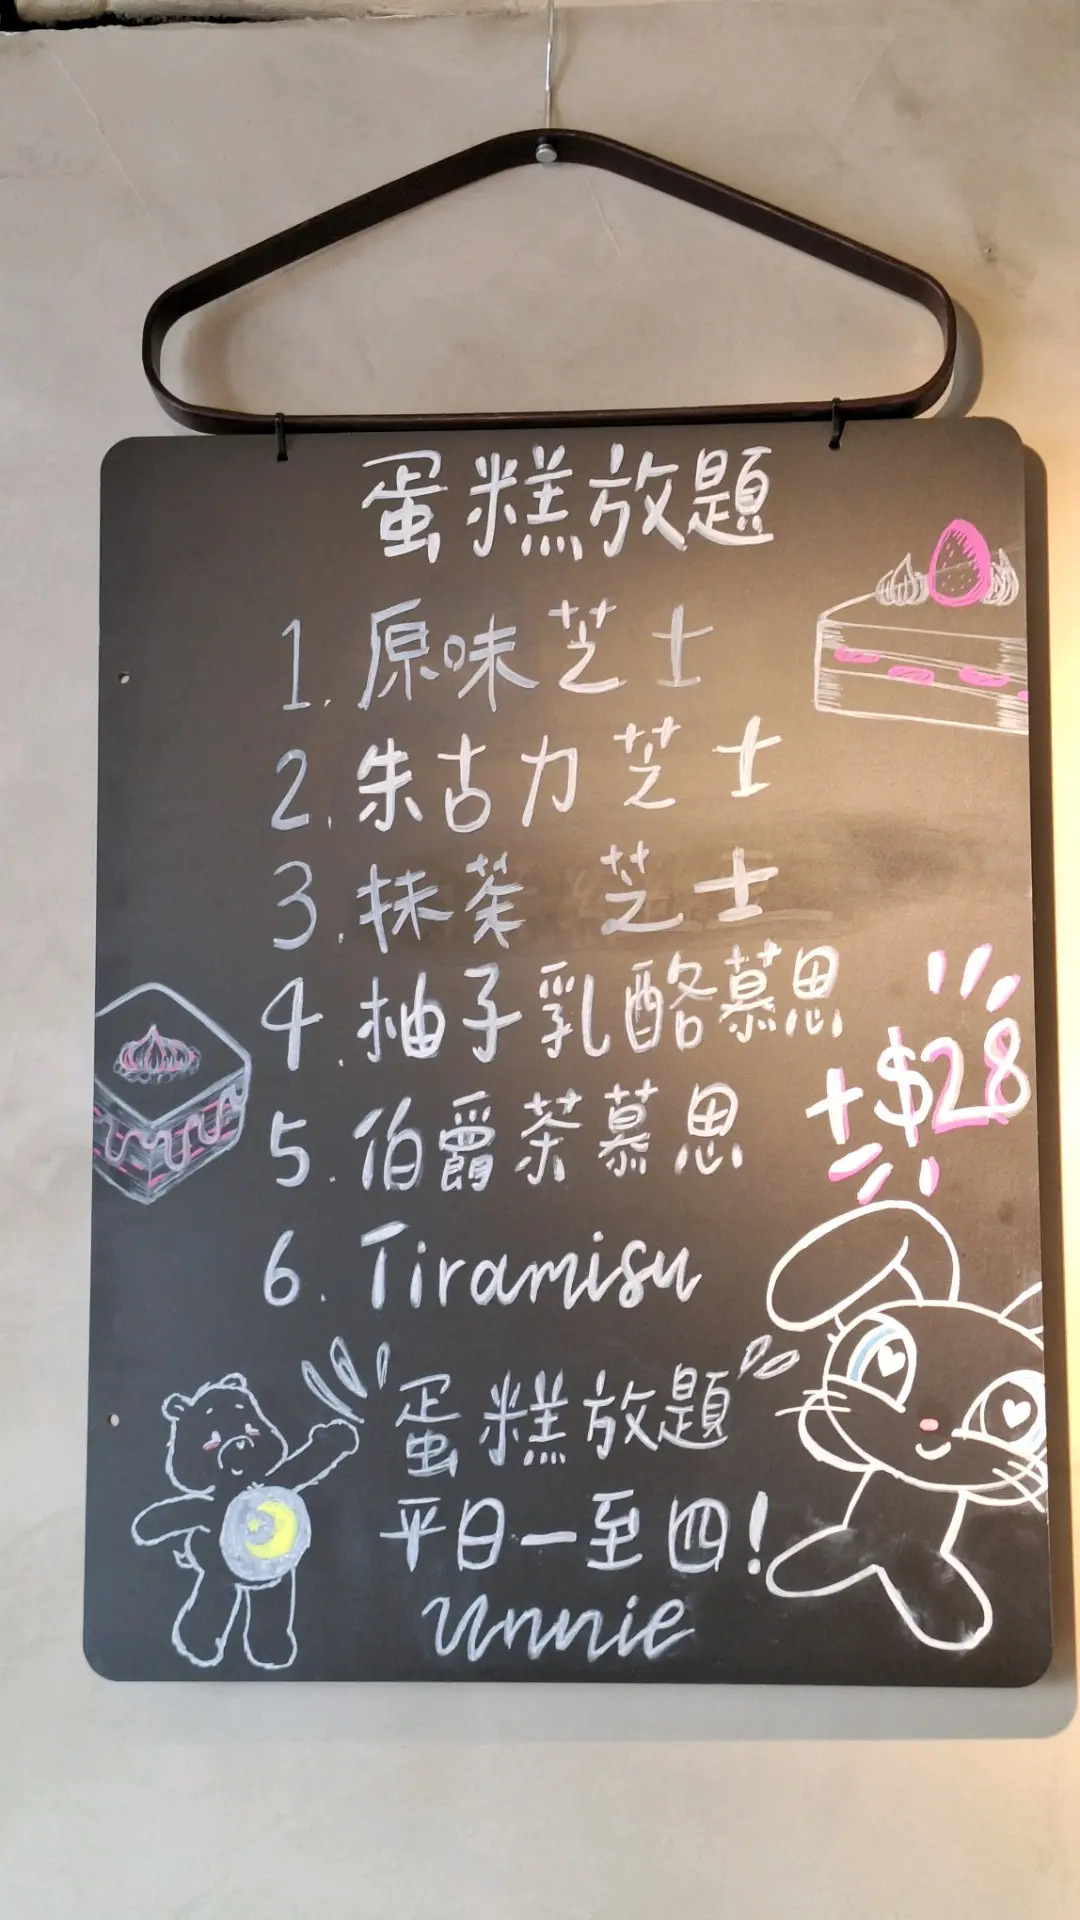 蛋糕放題
1. 原味芝士
2. 朱古力芝士
3. 抹茶 芝士
4. 柚子乳酪慕思
5. 伯爵茶慕思
+$28
6. Tiramisu
蛋糕放題
平日一至四!
Unnie